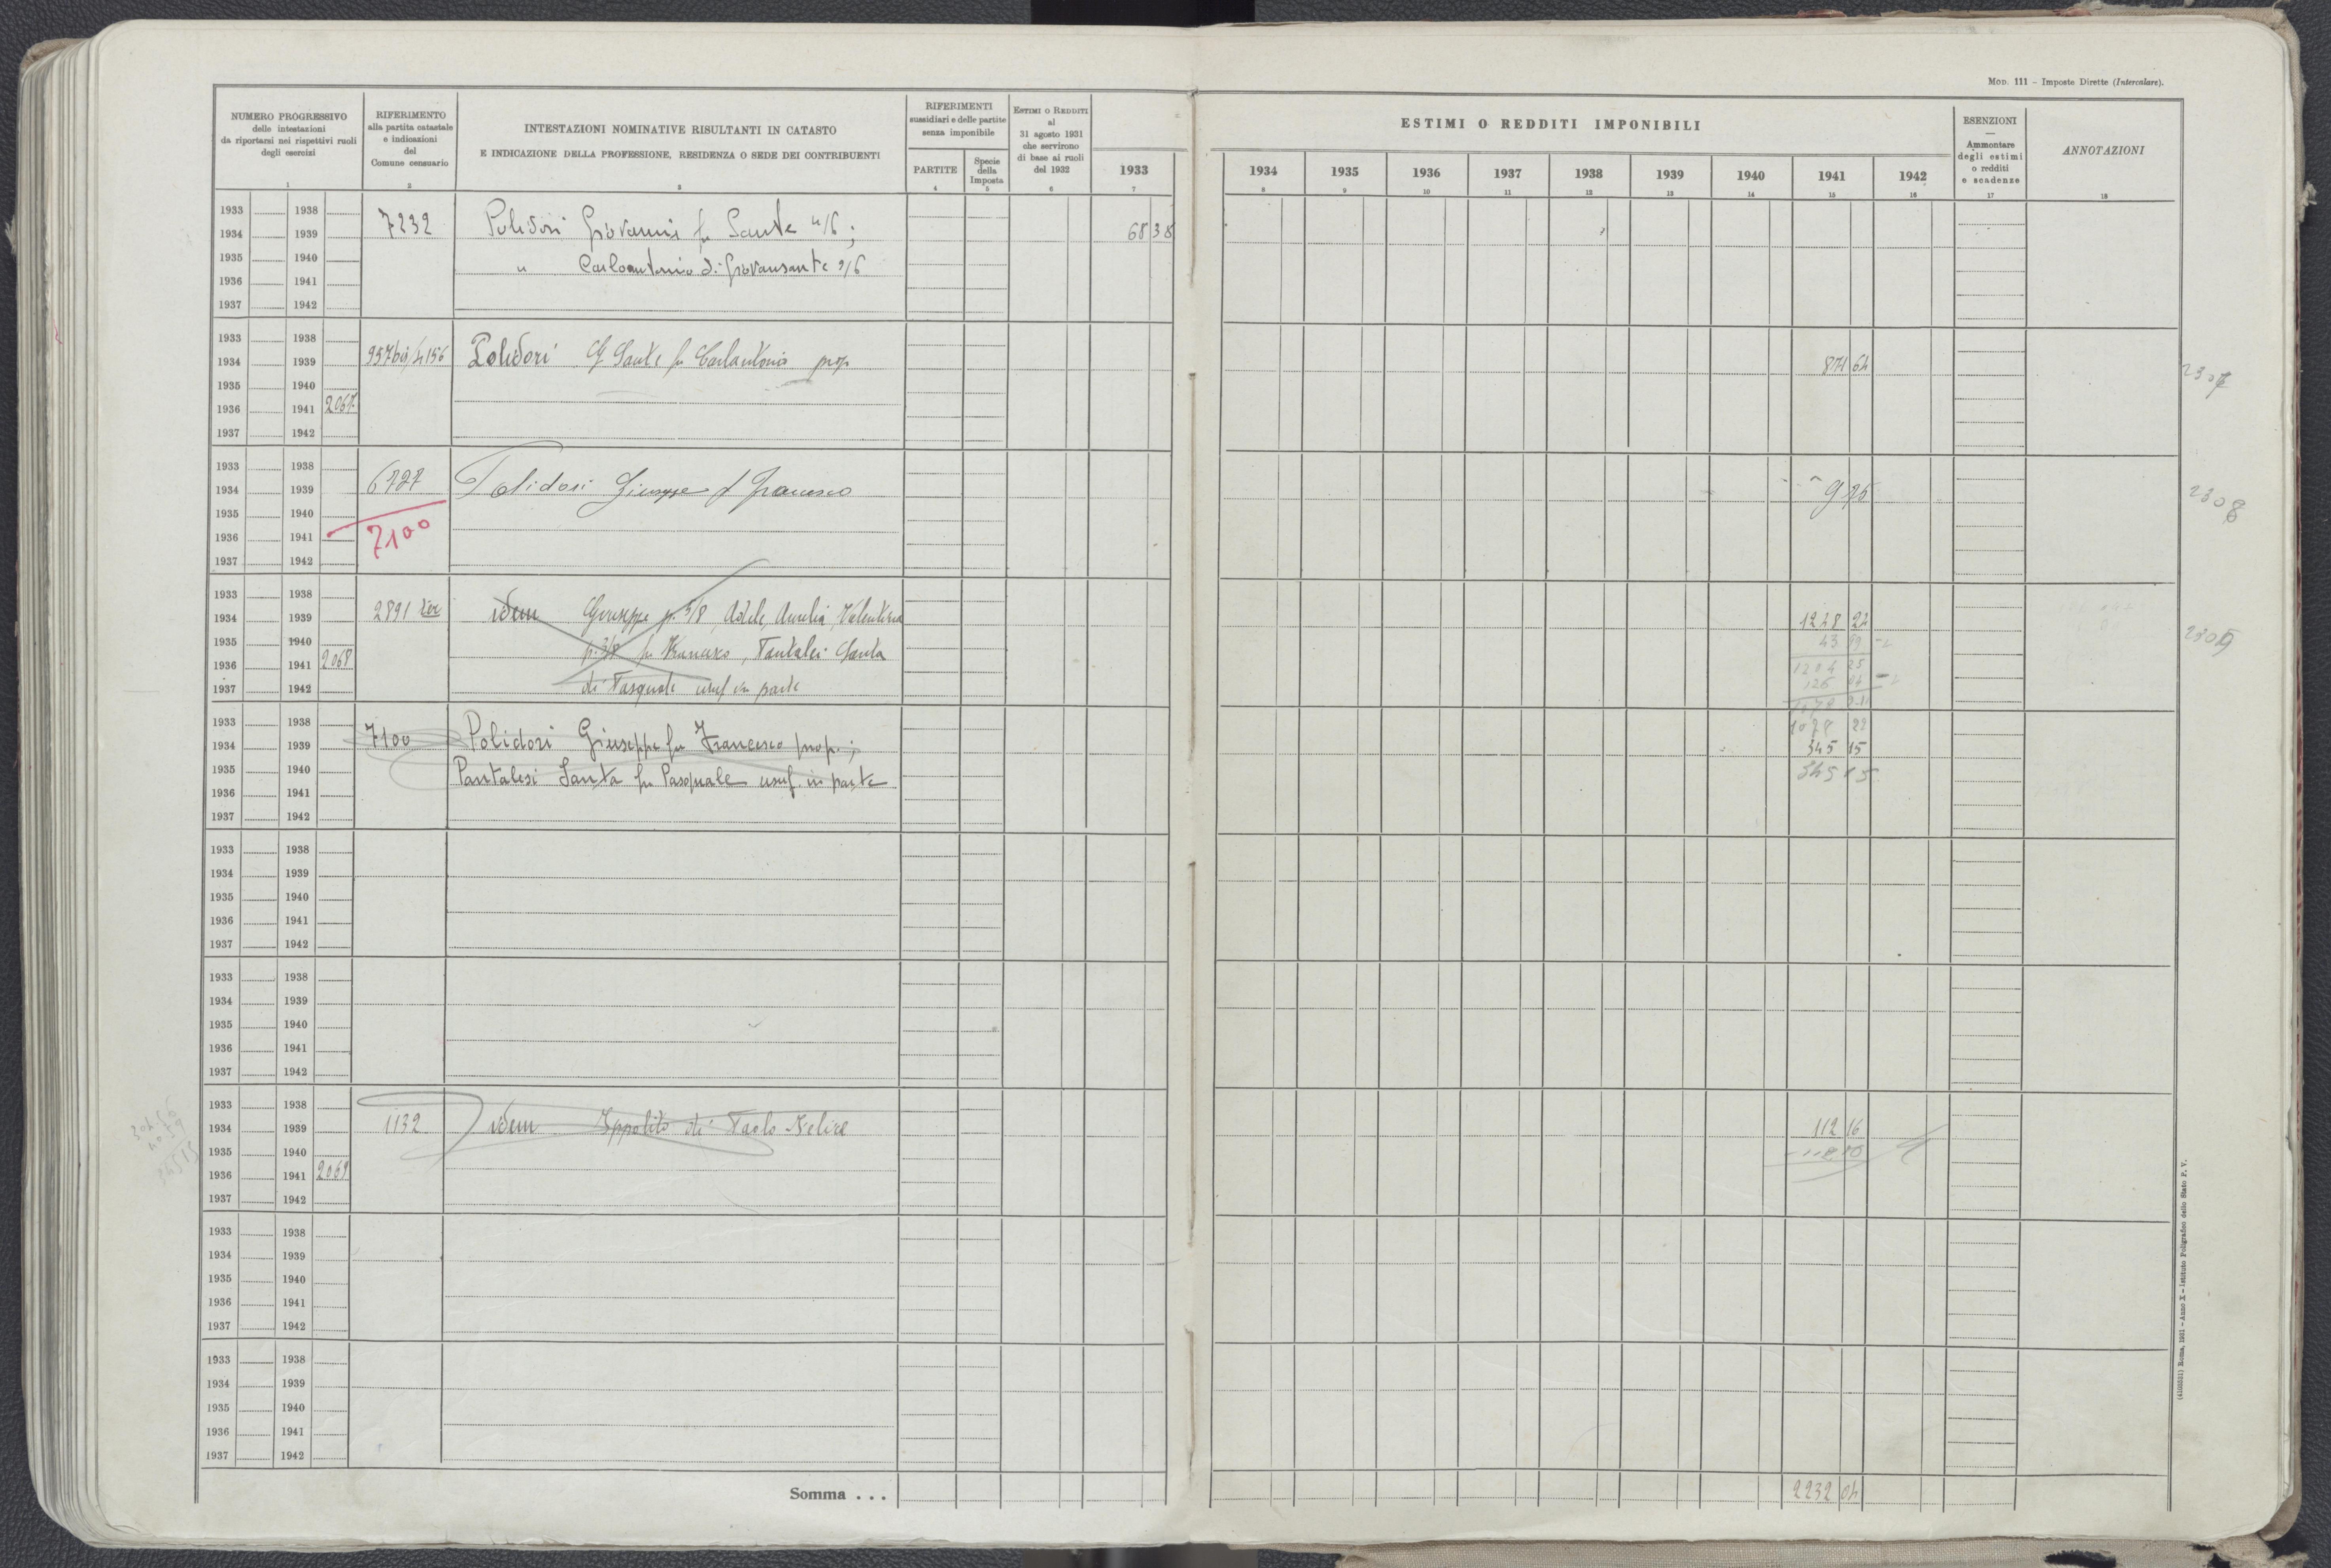 MOD. 111 – Imposte Dirette (Intercalare).
NUMERO PROGRESSIVO
delle intestazioni
da riportarsi nei rispettivi ruoli
degli esercizi
1
RIFERIMENTO
alla partita catastale
e indicazioni
del
Comune censuario
2
INTESTAZIONI NOMINATIVE RISULTANTI IN CATASTO
E INDICAZIONE DELLA PROFESSIONE, RESIDENZA O SEDE DEI CONTRIBUENTI
3
RIFERIMENTI
sussidiari e delle partite
senza imponibile
PARTITE
4
Specie
della
Imposta
5
ESTIMI O REDDITI
al
31 agosto 1931
che servirono
di base ai ruoli
del 1932
6
1933
7
ESTIMI O REDDITI IMPONIBILI
1934 1935 1936 1937 1938 1939 1940 1941 1942
8 9 10 11 12 13 14 15 16
ESENZIONI
—
Ammontare
degli estimi
o redditi
e scadenze
17
ANNOTAZIONI
18
1933 1938
7232 Polidori Giovanni fu Sante 4/6; 68 38
1934 1939
1935 1940 " Carloantonio di Giovansante 2/6
1936 1941
1937 1942
1933 1938
1934 1939 957bis/4156 Polidori G Sante fu Carlantonio prop 871 64 2307
1935 1940
1936 1941 2067
1937 1942
1933 1938
1934 1939 6727 Polidori Giuseppe di Francesco 9 75 2308
1935 1940
7100
1936 1941
1937 1942
1933 1938
1934 1939 2891 ter idem Giuseppe p. 5/8, Adele, Aurelia, Valentina 1248 24
1935 1940 p. 3/8 fu Francesco, Pantalei Santa 2309
1936 1941 2068 1204 25
1937 1942 di Pasquale usuf in parte
1933 1938
1934 1939 7100 Polidori Giuseppe fu Francesco prop.; 345 15
1935 1940 Pantalesi Santa fu Pasquale usuf. in parte 345 15
1936 1941
1937 1942
1933 1938
1934 1939
1935 1940
1936 1941
1937 1942
1933 1938
1934 1939
1935 1940
1936 1941
1937 1942
1933 1938
1934 1939 1132 idem Ippolito di Paolo Felice 112 16
1935 1940
1936 1941 2069
1937 1942
1933 1938
1934 1939
1935 1940
1936 1941
1937 1942
1933 1938
1934 1939
1935 1940
1936 1941
1937 1942
Somma . . . 2232 04
(4103251) Roma, 1931 – Anno X – Istituto Poligrafico dello Stato P. V.